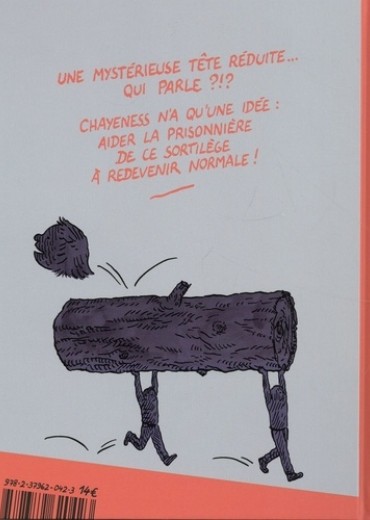 UNE MYSTÉRIEUSE TÊTE RÉDUITE...
QUI PARLE ?!?
CHAYENESS N'A QU'UNE IDÉE :
AIDER LA PRISONNIÈRE
DE CE SORTILÈGE
À REDEVENIR NORMALE !
978-2-37962-042-3 14€